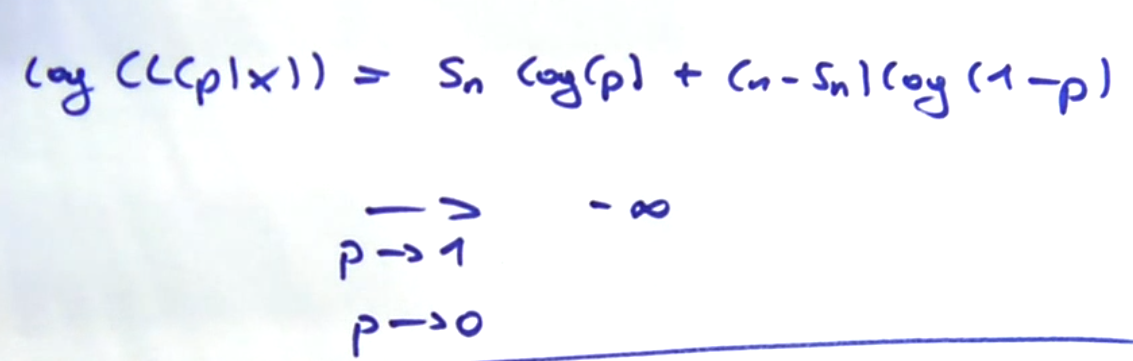 log (L(p|x)) = Sn log(p) + (n - Sn) log (1-p)
⟶ - ∞
p → 1
p → 0